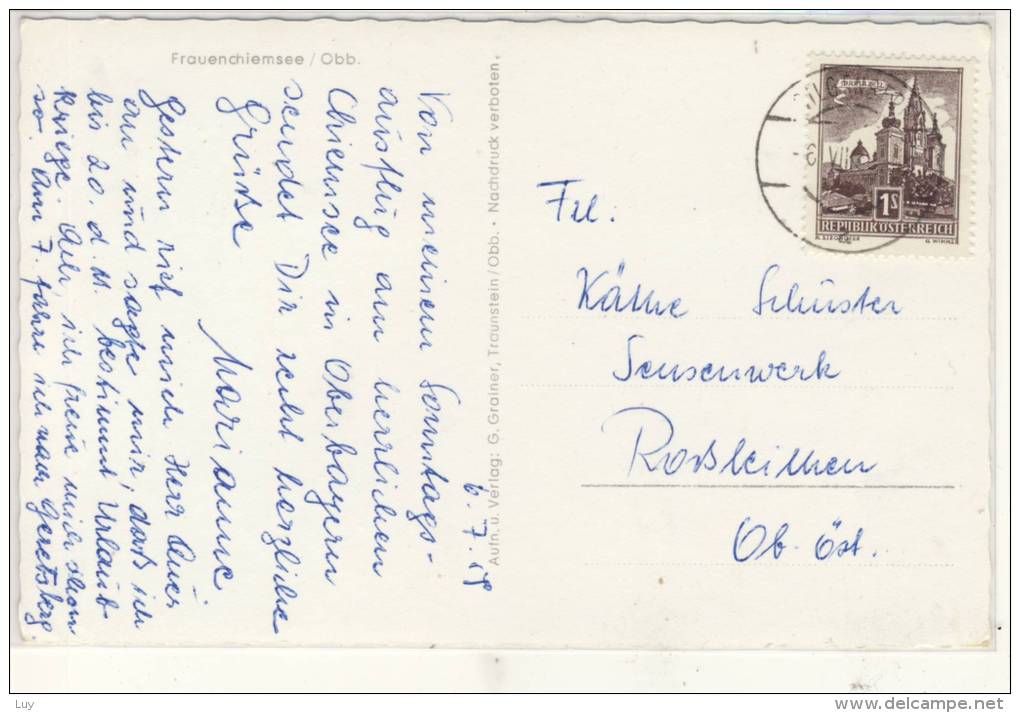 Frauenchiemsee / Obb.
6.7.
Von meinem Sonntags-
ausflug am herrlichen
Chiemsee in Oberbayern
sendet Dir recht herzliche
Grüße
Marianne
Gestern rief mich Herr
an und sagte mir, daß ich
bis 20. d. M. bestimmt Urlaub
kriege. Ach, ich freue mich schon
so. Am 7. fahre ich nach Geretsberg.
Aufn. u. Verlag: G. Grainer, Traunstein/Obb. • Nachdruck verboten.
MARIAZELL
1S
REPUBLIK ÖSTERREICH
G. WIMMER
VII
Frl.
Käthe Schuster
Sensenwerk
Roßleithen
Ob. Öst.
Luy
www.delcampe.net